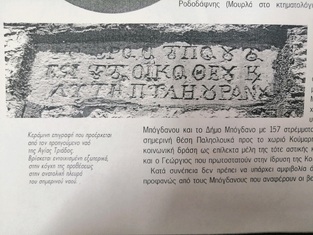 Ροδοδάφνης (Μουρλά στο κτηματολόγι
ΟΙΚΟ ΘΕΟΥ
ΠΥΛΗ ΟΥΡΑΝΟΥ
Κεράμινη επιγραφή που προέρχεται
από τον προηγούμενο ναό
της Αγίας Τριάδος.
Βρίσκεται εντοιχισμένη εξωτερικά,
στην κόγχη της προθέσεως
στην ανατολική πλευρά
του σημερινού ναού.
Μπόγδανου και το Δήμο Μπόγδανο με 157 στρέμματα
σημερινή θέση Παληολουκά προς το χωριό Κούμαρι
κοινωνική δράση ως επίλεκτα μέλη της τότε αστικής κ
και ο Γεώργιος που πρωτοστατούν στην ίδρυση της Κο
Κατά συνέπεια δεν πρέπει να υπάρχει αμφιβολία ό
προφανώς από τους Μπόγδανους που αναφέρουν οι βε